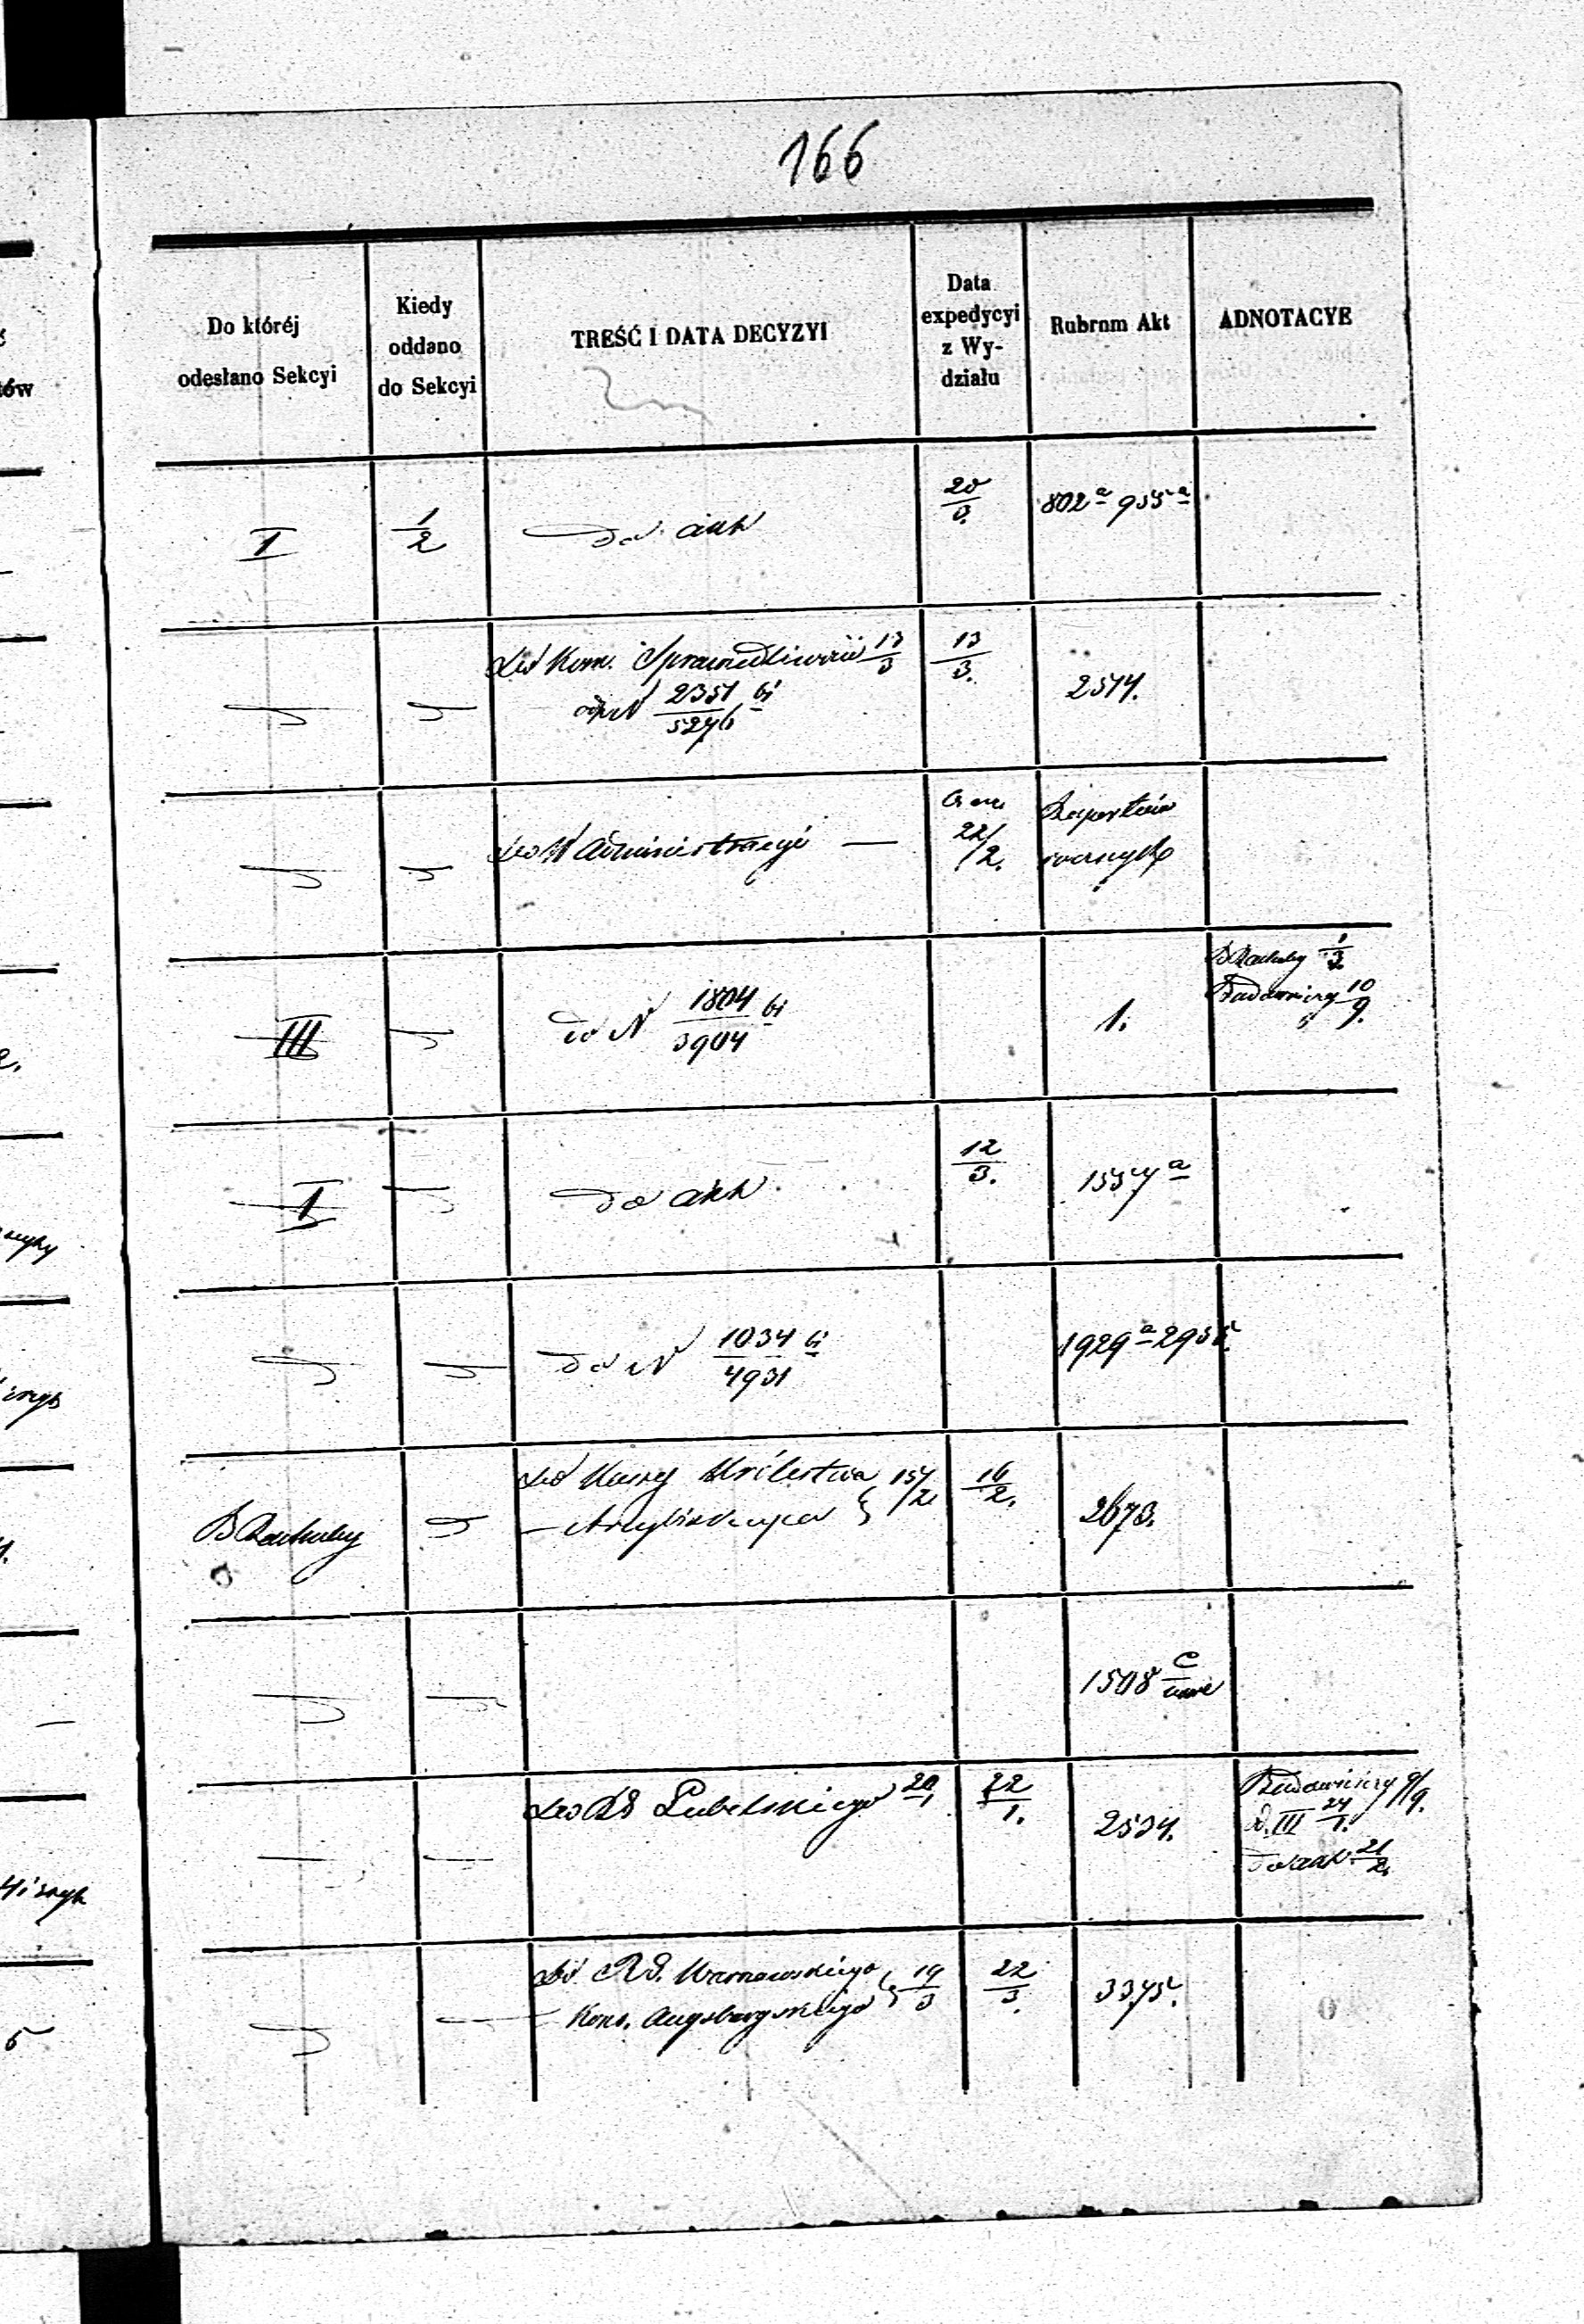 166
Do któréj
odesłano Sekcyi
Kiedy
oddano
do Sekcyi
TREŚĆ I DATA DECYZYI
Data
expedycyi
z Wy-
działu
Rubrum Akt
ADNOTACYE
I
1/2
do akt
20/3.
802ª 955ª
Do Kom. Sprawiedliwości 13/3
odp N 2351/5276
13/3.
2514.
Do W Administracyi —
22/2.
Raportów
III
do N 1804/3904
1.
B Rachuby 1/3
Budowniczy 10/9.
I
do akt
12/3.
1557ª
do N 1034/4931
1929ª
B Rachuby
Do Kassy Królestwa
16/2.
2673.
1508 C
Do RG Lubelskiego 20/1
22/1.
2534.
Budowniczy 9/9.
III 24/1.
do akt 21/2.
Do RG. Warszawskiego
Kons. Augsburgskiego 19/3
22/3.
3375.